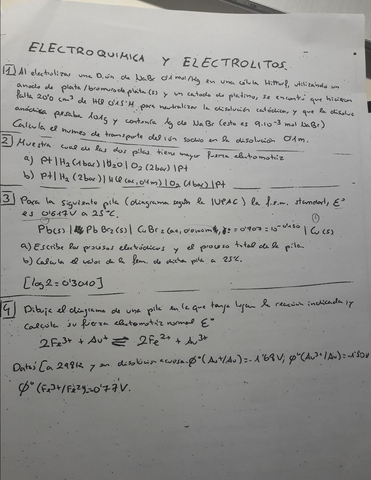 ELECTROQUIMICA Y ELECTROLITOS.
1 Al electrolizar una Dion de NaBr 0'1 mol/Kg en una célula Hittorf, utilizando un
anodo de plata/bromuro de plata (s) y un catodo de platino, se encontró que hicieron
falta 20'0 cm³ de HCl 0'15 M para neutralizar la disolución catódica, y que la disolución
anódica pesaba y contenia 1g de NaBr (esto es 9.10⁻³ mol NaBr)
Calcula el numero de transporte del ión sodio en la disolución 0'1m.
2 Muestra cual de las dos pilas tiene mayor fuerza electromotriz
a) Pt | H₂ (1bar) | H₂O | O₂ (2bar) | Pt
b) Pt | H₂ (2bar) | HCl (ac, 0'1m) | O₂ (1bar) | Pt
3 Para la siguiente pila (diagrama según la IUPAC) la f.e.m. standart, E°
es 0'517V a 25°C.
Pb(s) | PbBr₂(s) | CuBr₂ (ac, 0'01 | Cu(s)
a) Escribe los procesos electródicos y el proceso total de la pila.
b) Calcula el valor de la fem de dicha pila a 25°C.
[log 2 = 0'3010]
4 Dibuje el diagrama de una pila en la que tenga lugar la reacción indicada, y
calcula su fuerza electromotriz normal E°
2Fe³⁺ + Au⁺ ⇌ 2Fe²⁺ + Au³⁺
Datos [a 298K y en disolucion acuosa. φ°(Au⁺/Au) = -1'68V; φ°(Au³⁺/Au) = -1'50V
φ°(Fe³⁺/Fe²⁺) = 0'77V.